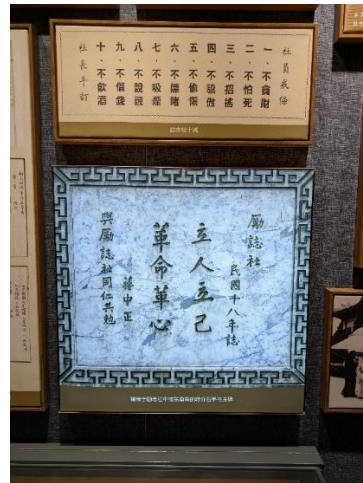 社員戒條
一、不貪財
二、不怕死
三、不招搖
四、不驕傲
五、不偷懶
六、不嫖賭
七、不吸煙
八、不說謊
九、不借錢
十、不飲酒
社長手訂
励志社十诫
勵誌社
民國十八年誌
立人立己
革命革心
蔣中正
與勵誌社同仁共勉